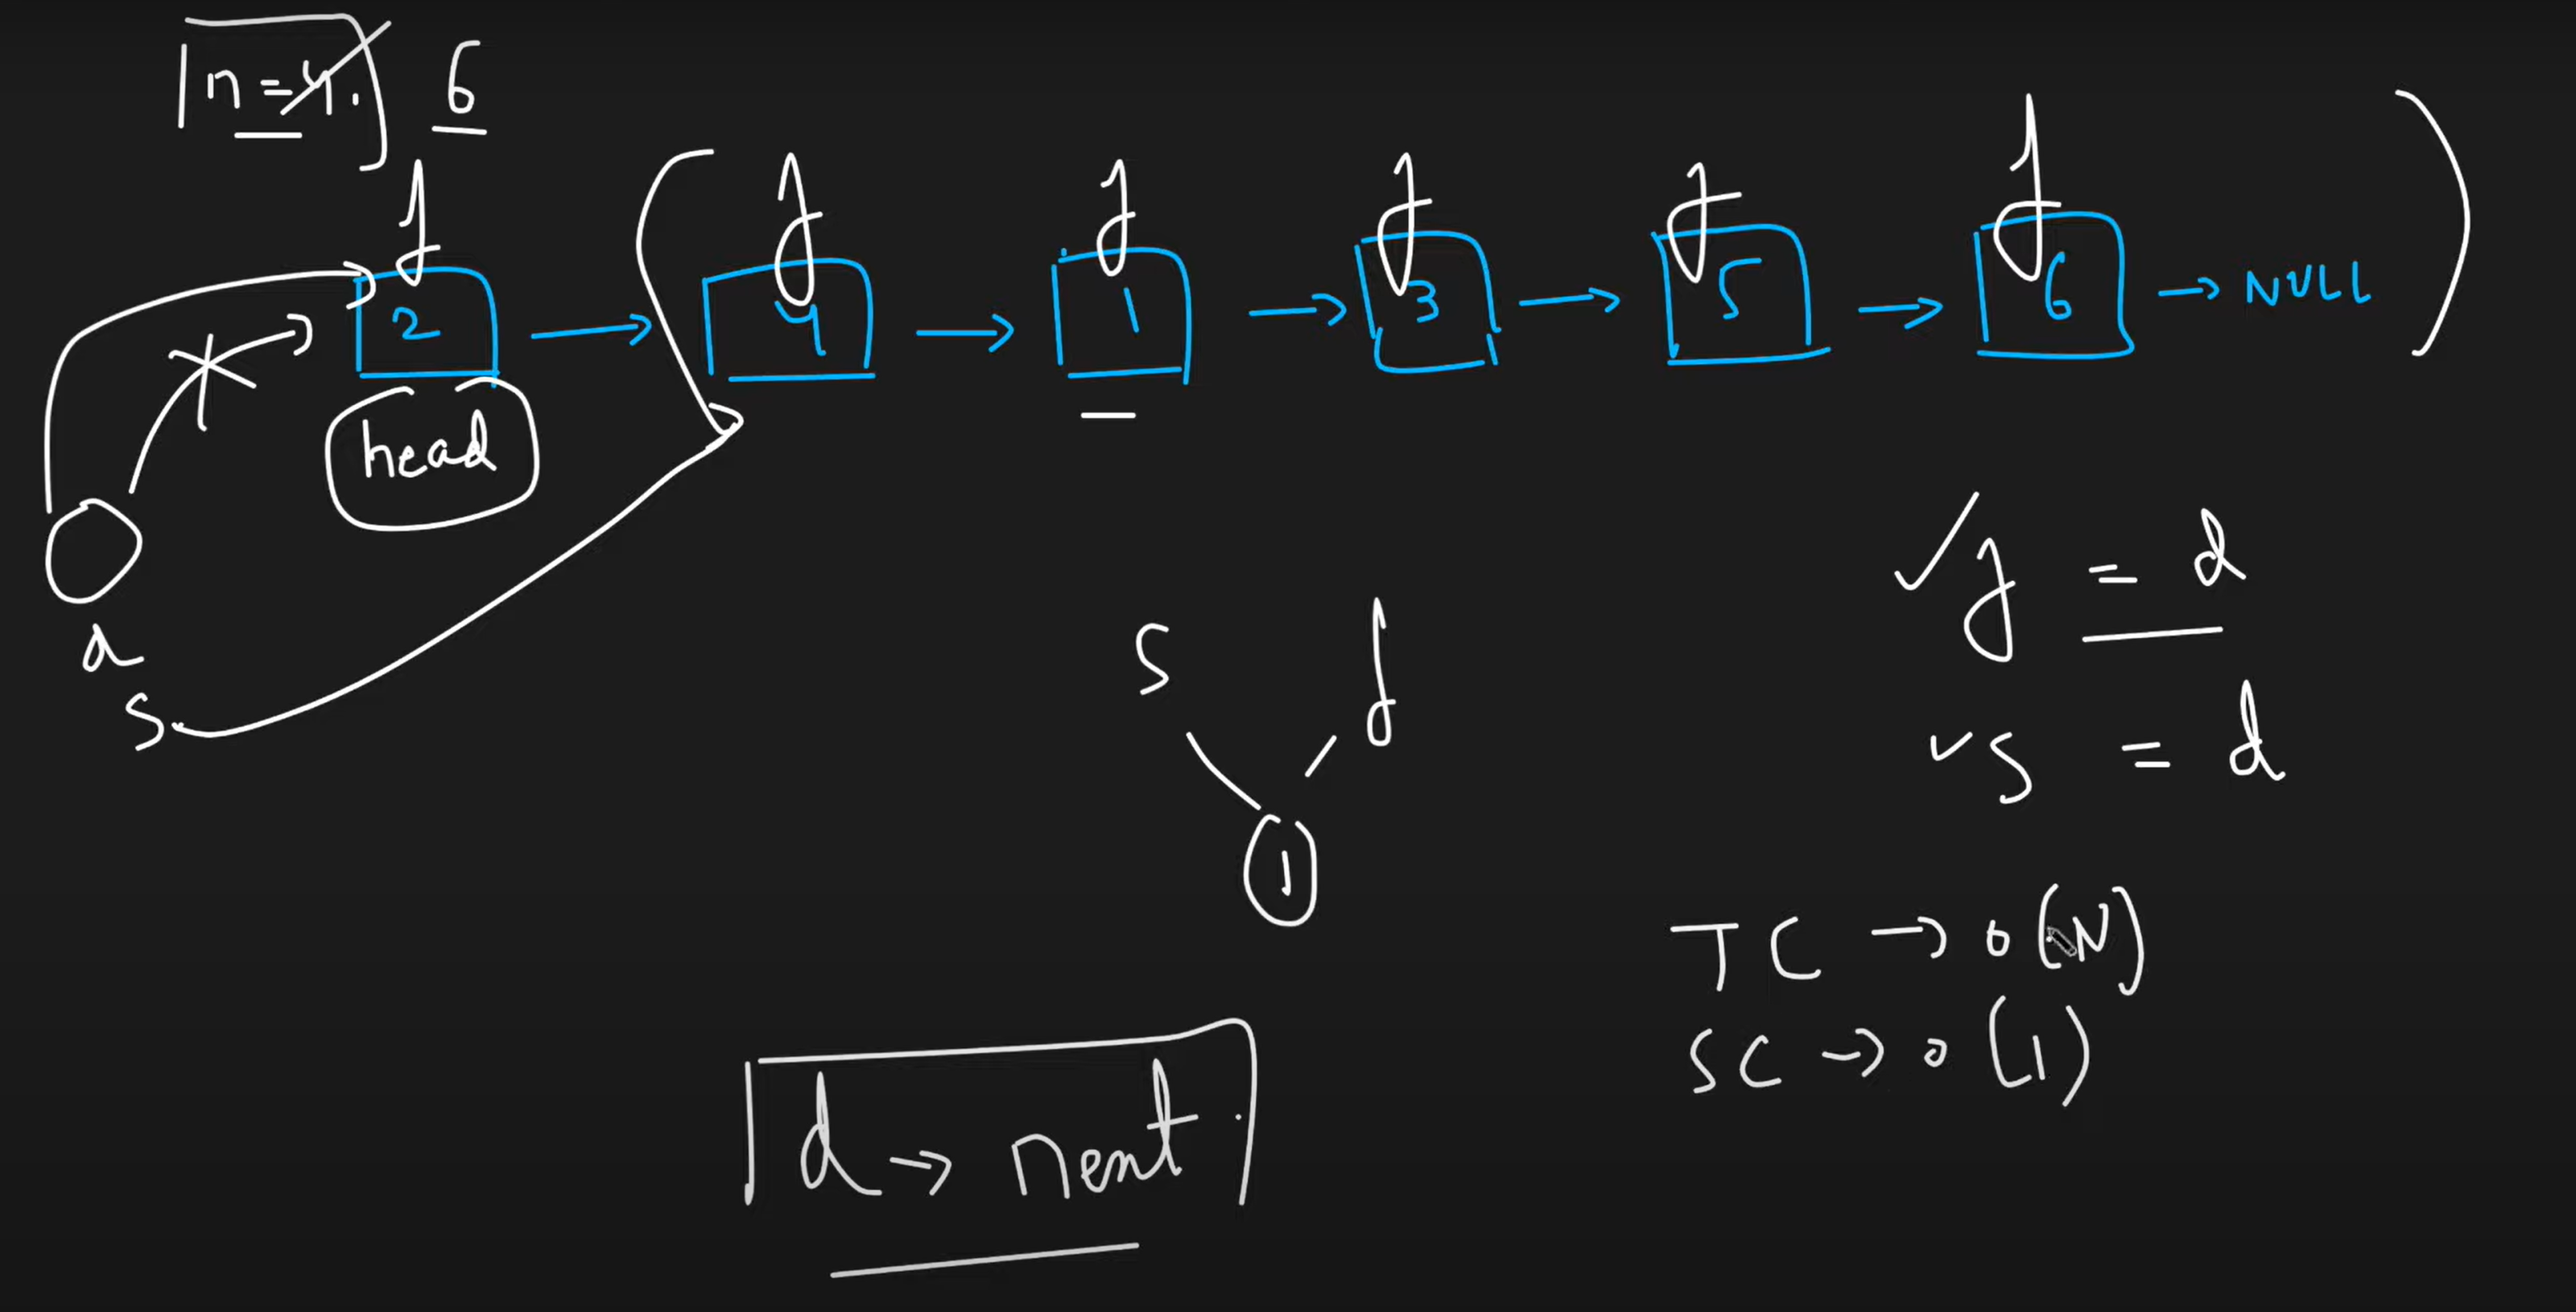 n = 4. 6
f f f f f f
2 → 4 → 1 → 3 → 5 → 6 → NULL
head
d
s
s f
1
f = d
s = d
TC → O(N)
SC → O(1)
d → next